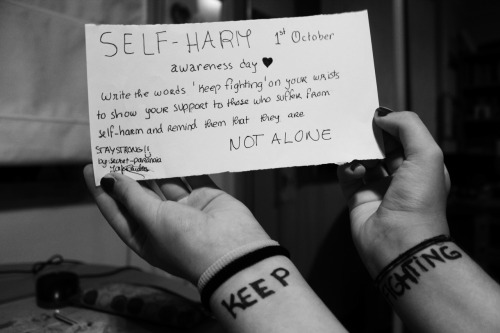 SELF-HARM 1st October
awareness day ♥
Write the words 'keep fighting' on your wrists
to show your support to those who suffer from
self-harm and remind them that they are
NOT ALONE
STAYSTRONG!!
by: secret-paranoia
KEEP
FIGHTING